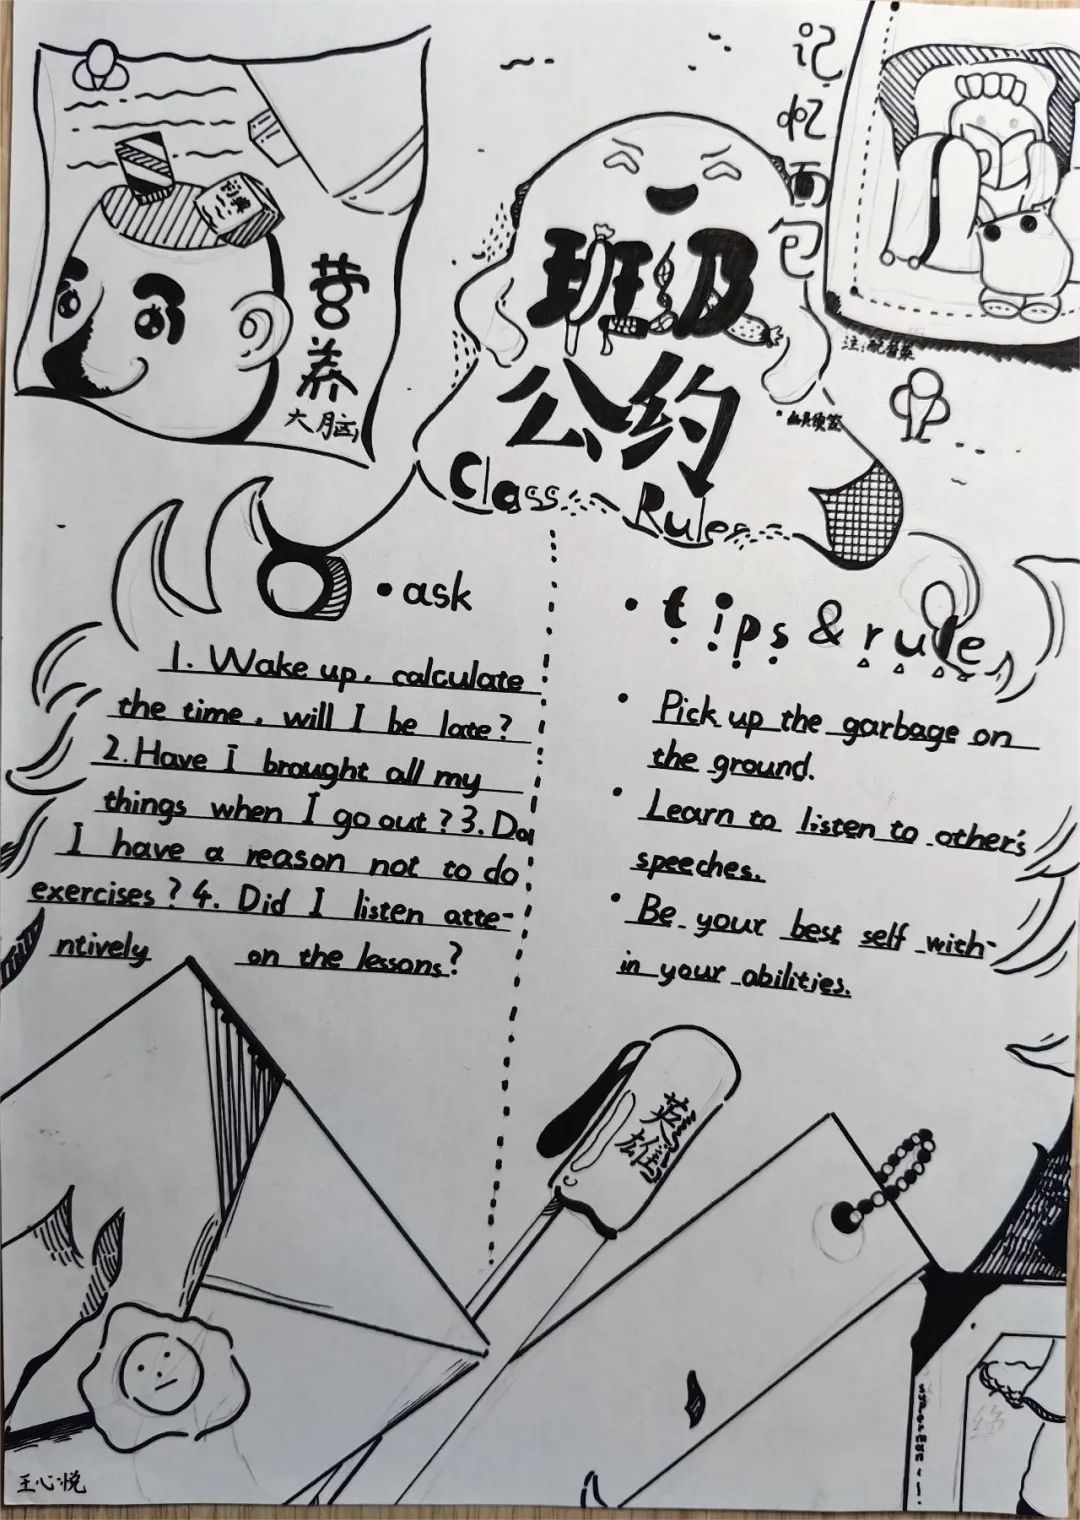 记忆面包
营养
大脑
班级
公约
Class Rules
• ask
1. Wake up, calculate
the time, will I be late?
2. Have I brought all my
things when I go out? 3. Do
I have a reason not to do
exercises? 4. Did I listen atte-
ntively on the lessons?
• tips & rule
• Pick up the garbage on
the ground.
• Learn to listen to other's
speeches.
• Be your best self with-
in your abilities.
英雄
王心悦